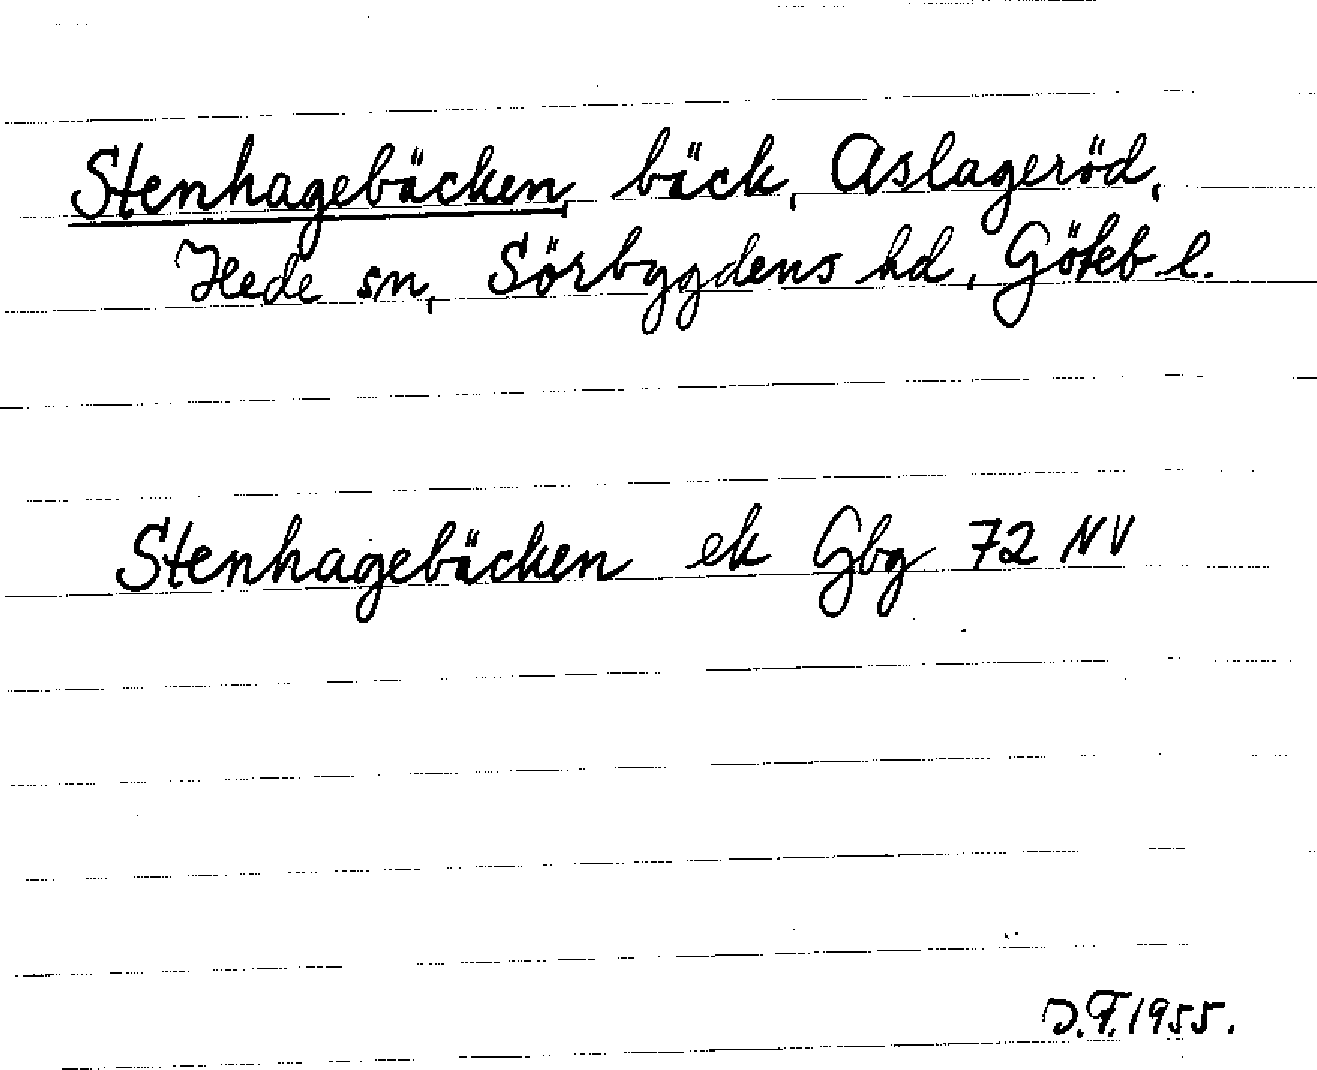 Stenhagebäcken, bäck, Aslageröd,
Hede sn, Sörbygdens hd, Göteb. l.
Stenhagebäcken ek Gbg 72 NV
J.F. 1955.